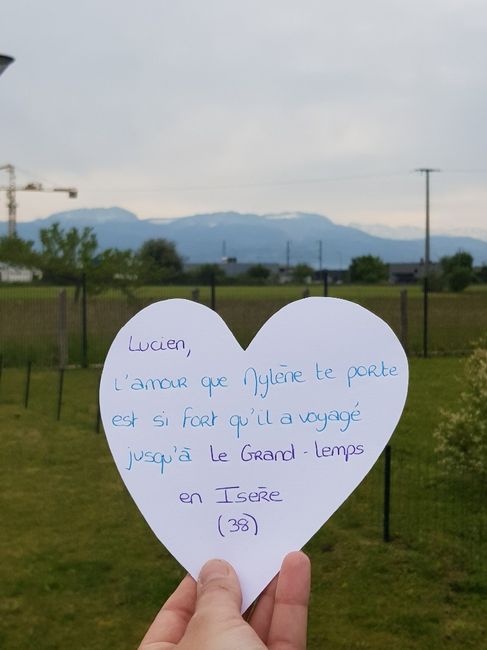 Lucien,
L'amour que Mylène te porte
est si fort qu'il a voyagé
jusqu'à Le Grand-Lemps
en Isère
(38)